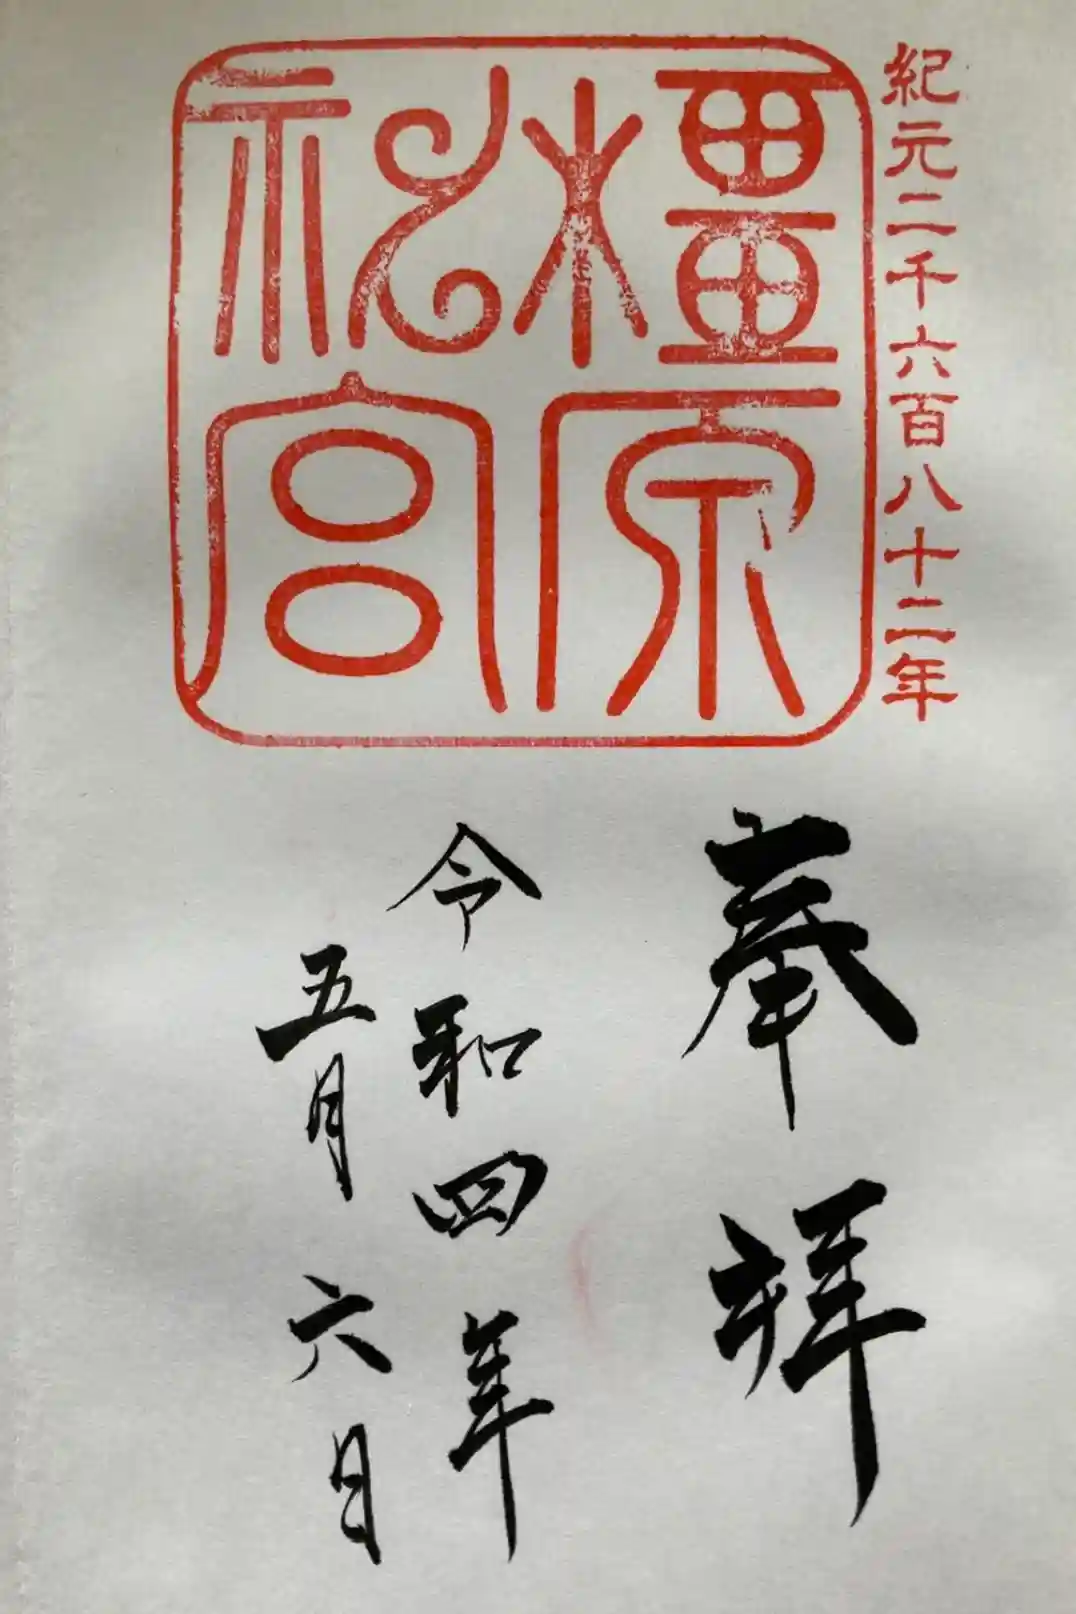 紀元二千六百八十二年
橿原
神宮
奉拝
令和四年
五月六日